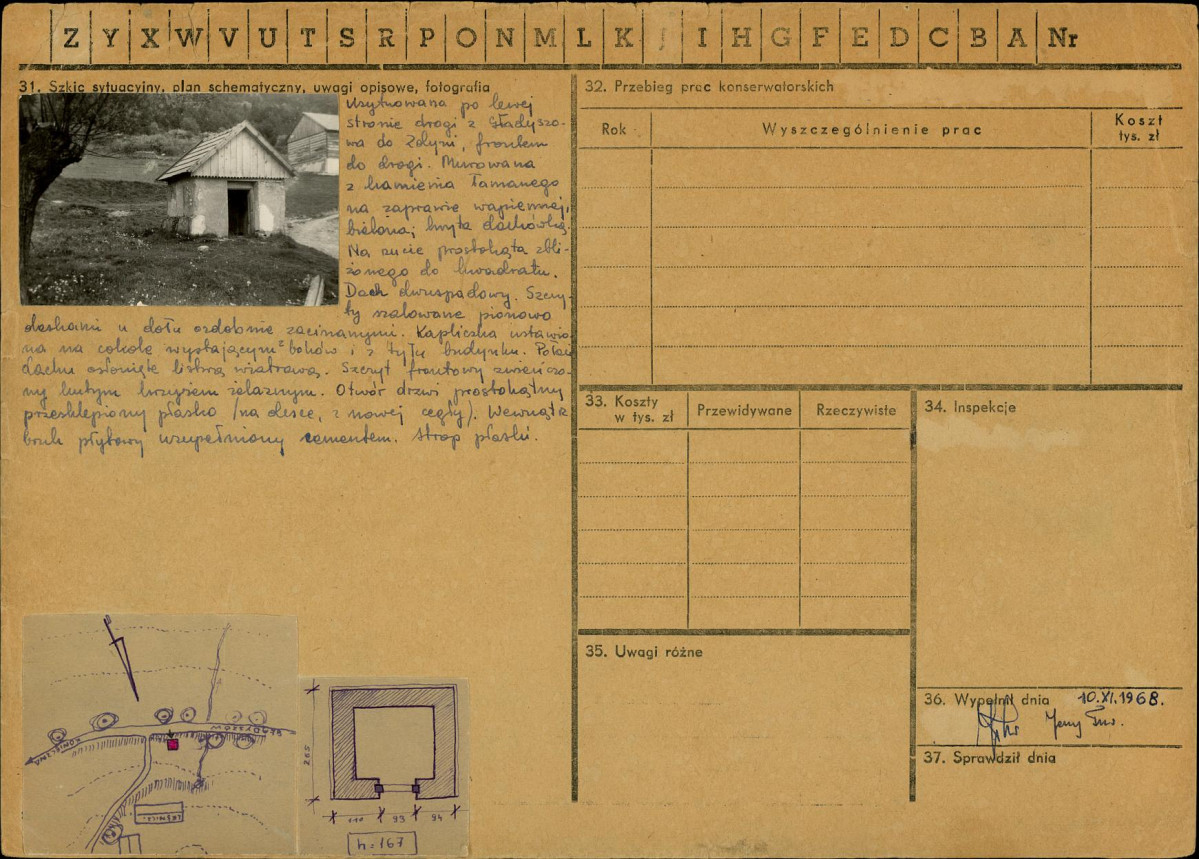 Z Y X W V U T S R P O N M L K J I H G F E D C B A Nr
31. Szkic sytuacyjny, plan schematyczny, uwagi opisowe, fotografia
Usytuowana po lewej
stronie drogi z Gładyszo-
wa do Zdyni, frontem
do drogi. Murowana
z kamienia łamanego
na zaprawie wapiennej,
bielona; kryta dachówką.
Na rzucie prostokąta zbli-
żonego do kwadratu.
Dach dwuspadowy. Szczy-
ty szalowane pionowo
deskami u dołu ozdobnie zacinanymi. Kapliczka ustawio-
na na cokole wystającym z boków i z tyłu budynku. Połać
dachu osłonięte listwą wiatrową. Szczyt frontowy zwieńczo-
ny kutym krzyżem żelaznym. Otwór drzwi prostokątny
przesklepiony płasko (na desce, z nowej cegły). Wewnątrz
bruk płytowy uzupełniony cementem. Strop płaski.
KONIECZNA
GŁADYSZÓW
LEŚNICZ.
265
110 93 94
h=167
32. Przebieg prac konserwatorskich
Rok
Wyszczególnienie prac
Koszt
tys. zł
33. Koszty
w tys. zł
Przewidywane
Rzeczywiste
34. Inspekcje
35. Uwagi różne
36. Wypełnił dnia 10.XI.1968.
37. Sprawdził dnia